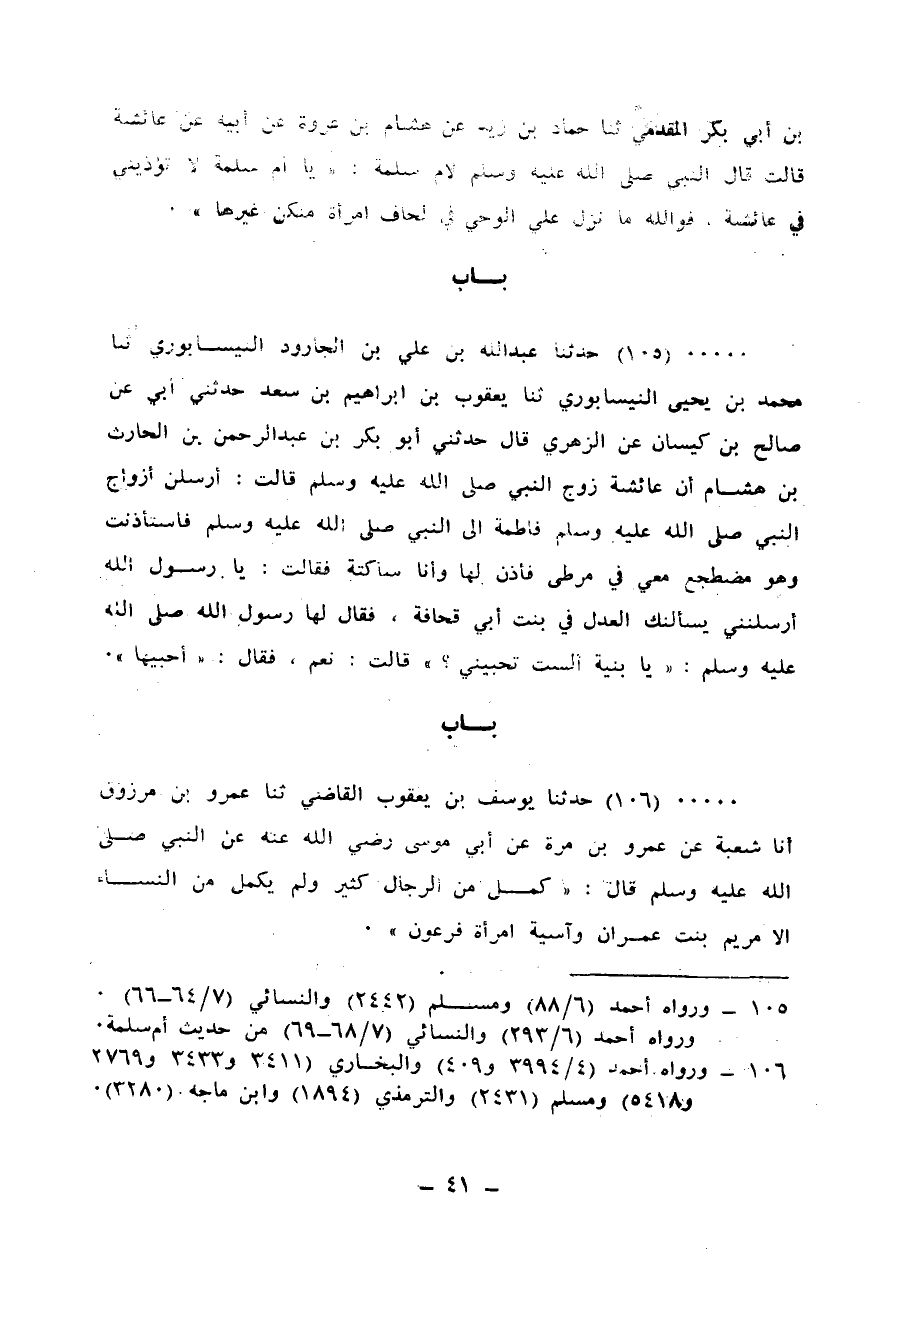 بن أبي بكر المقدمي ثنا حماد بن زيد عن هشام بن عروة عن أبيه عن عائشة
قالت قال النبي صلى الله عليه وسلم لام سلمة : « يا أم سلمة لا تؤذيني
في عائشة . فوالله ما نزل علي الوحي في لحاف امرأة منكن غيرها » ٠
بـــاب
٠٠٠٠٠ (١٠٥) حدثنا عبدالله بن علي بن الجارود النيســابوري ثنا
محمد بن يحيى النيسابوري ثنا يعقوب بن ابراهيم بن سعد حدثني أبي عن
صالح بن كيسان عن الزهري قال حدثني أبو بكر بن عبدالرحمن بن الحارث
بن هشــام أن عائشة زوج النبي صلى الله عليه وسلم قالت : أرسلن أزواج
النبي صلى الله عليه وسلم فاطمة الى النبي صلى الله عليه وسلم فاستأذنت
وهو مضطجع معي في مرطى فأذن لها وأنا ساكتة فقالت : يا رســول الله
أرسلنني يسألنك العدل في بنت أبي قحافة ، فقال لها رسول الله صلى الله
عليه وسلم : « يا بنية ألست تحبيني ؟ » قالت : نعم ، فقال : « أحبيها »٠
بـــاب
٠٠٠٠٠ (١٠٦) حدثنا يوسف بن يعقوب القاضي ثنا عمرو بن مرزوق
أنا شعبة عن عمرو بن مرة عن أبي موسى رضي الله عنه عن النبي صــلى
الله عليه وسلم قال : « كمــل من الرجال كثير ولم يكمل من النســـاء
الا مريم بنت عمــران وآسية امرأة فرعون » ٠
١٠٥ ــ ورواه أحمد (٨٨/٦) ومســلم (٢٤٤٢) والنسائي (٦٤/٧ــ٦٦) ٠
ورواه أحمد (٢٩٣/٦) والنسائي (٦٨/٧ــ٦٩) من حديث أم سلمة٠
١٠٦ ــ ورواه أحمد (٣٩٩٤/٤ و٤٠٩) والبخــاري (٣٤١١ و٣٤٣٣ و٢٧٦٩
و٥٤١٨) ومسلم (٢٤٣١) والترمذي (١٨٩٤) وابن ماجه (٣٢٨٠)٠
ــ ٤١ ــ